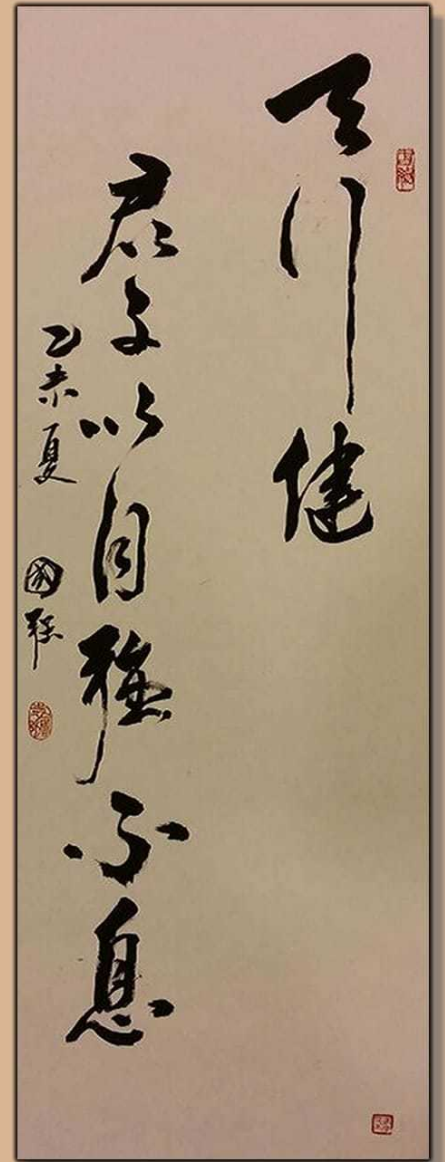 天行健
君子以自强不息
乙未夏
國强